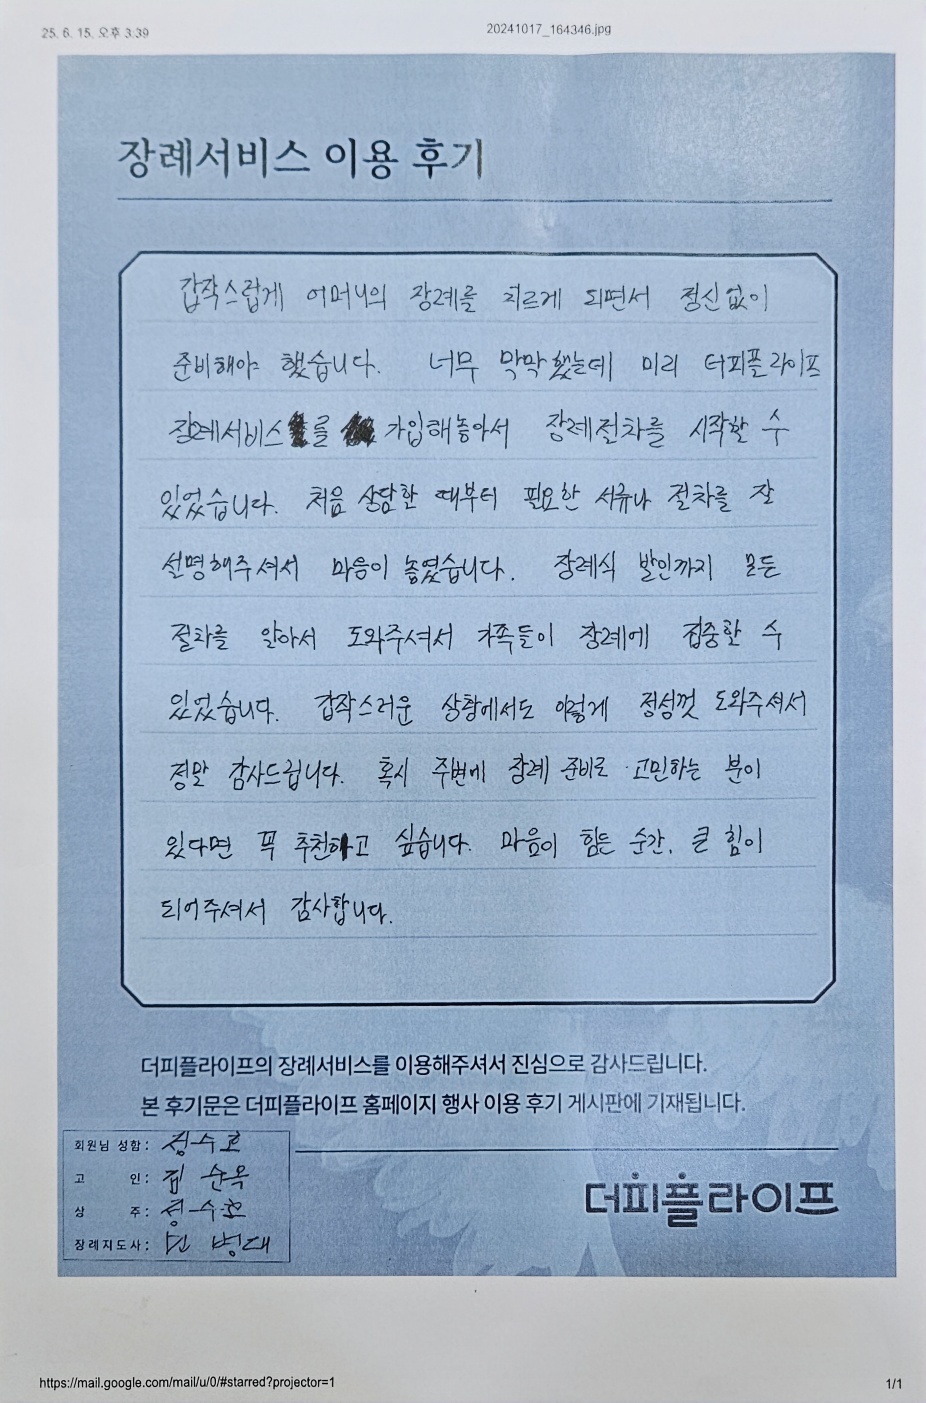 25. 6. 15. 오후 3:39
20241017_164346.jpg
장례서비스 이용 후기
갑작스럽게 어머니의 장례를 치르게 되면서 정신없이
준비해야 했습니다. 너무 막막했는데 미리 더피플라이프
장례서비스를 가입해놓아서 장례절차를 시작할 수
있었습니다. 처음 상담한 때부터 필요한 서류나 절차를 잘
설명해주셔서 마음이 놓였습니다. 장례식 발인까지 모든
절차를 알아서 도와주셔서 가족들이 장례에 집중할 수
있었습니다. 갑작스러운 상황에서도 이렇게 정성껏 도와주셔서
정말 감사드립니다. 혹시 주변에 장례 준비로 고민하는 분이
있다면 꼭 추천하고 싶습니다. 마음이 힘든 순간, 큰 힘이
되어주셔서 감사합니다.
더피플라이프의 장례서비스를 이용해주셔서 진심으로 감사드립니다.
본 후기문은 더피플라이프 홈페이지 행사 이용 후기 게시판에 기재됩니다.
회원님 성함: 정수호
고 인: 순옥
상 주: 정수호
장례지도사: 병대
더피플라이프
https://mail.google.com/mail/u/0/#starred?projector=1
1/1